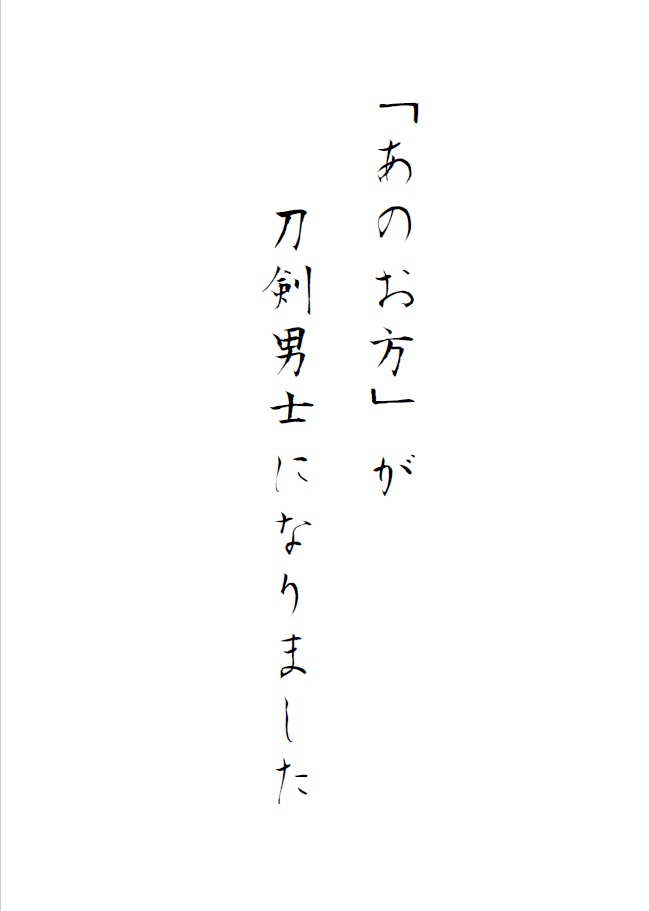 「あのお方」が
刀剣男士になりました